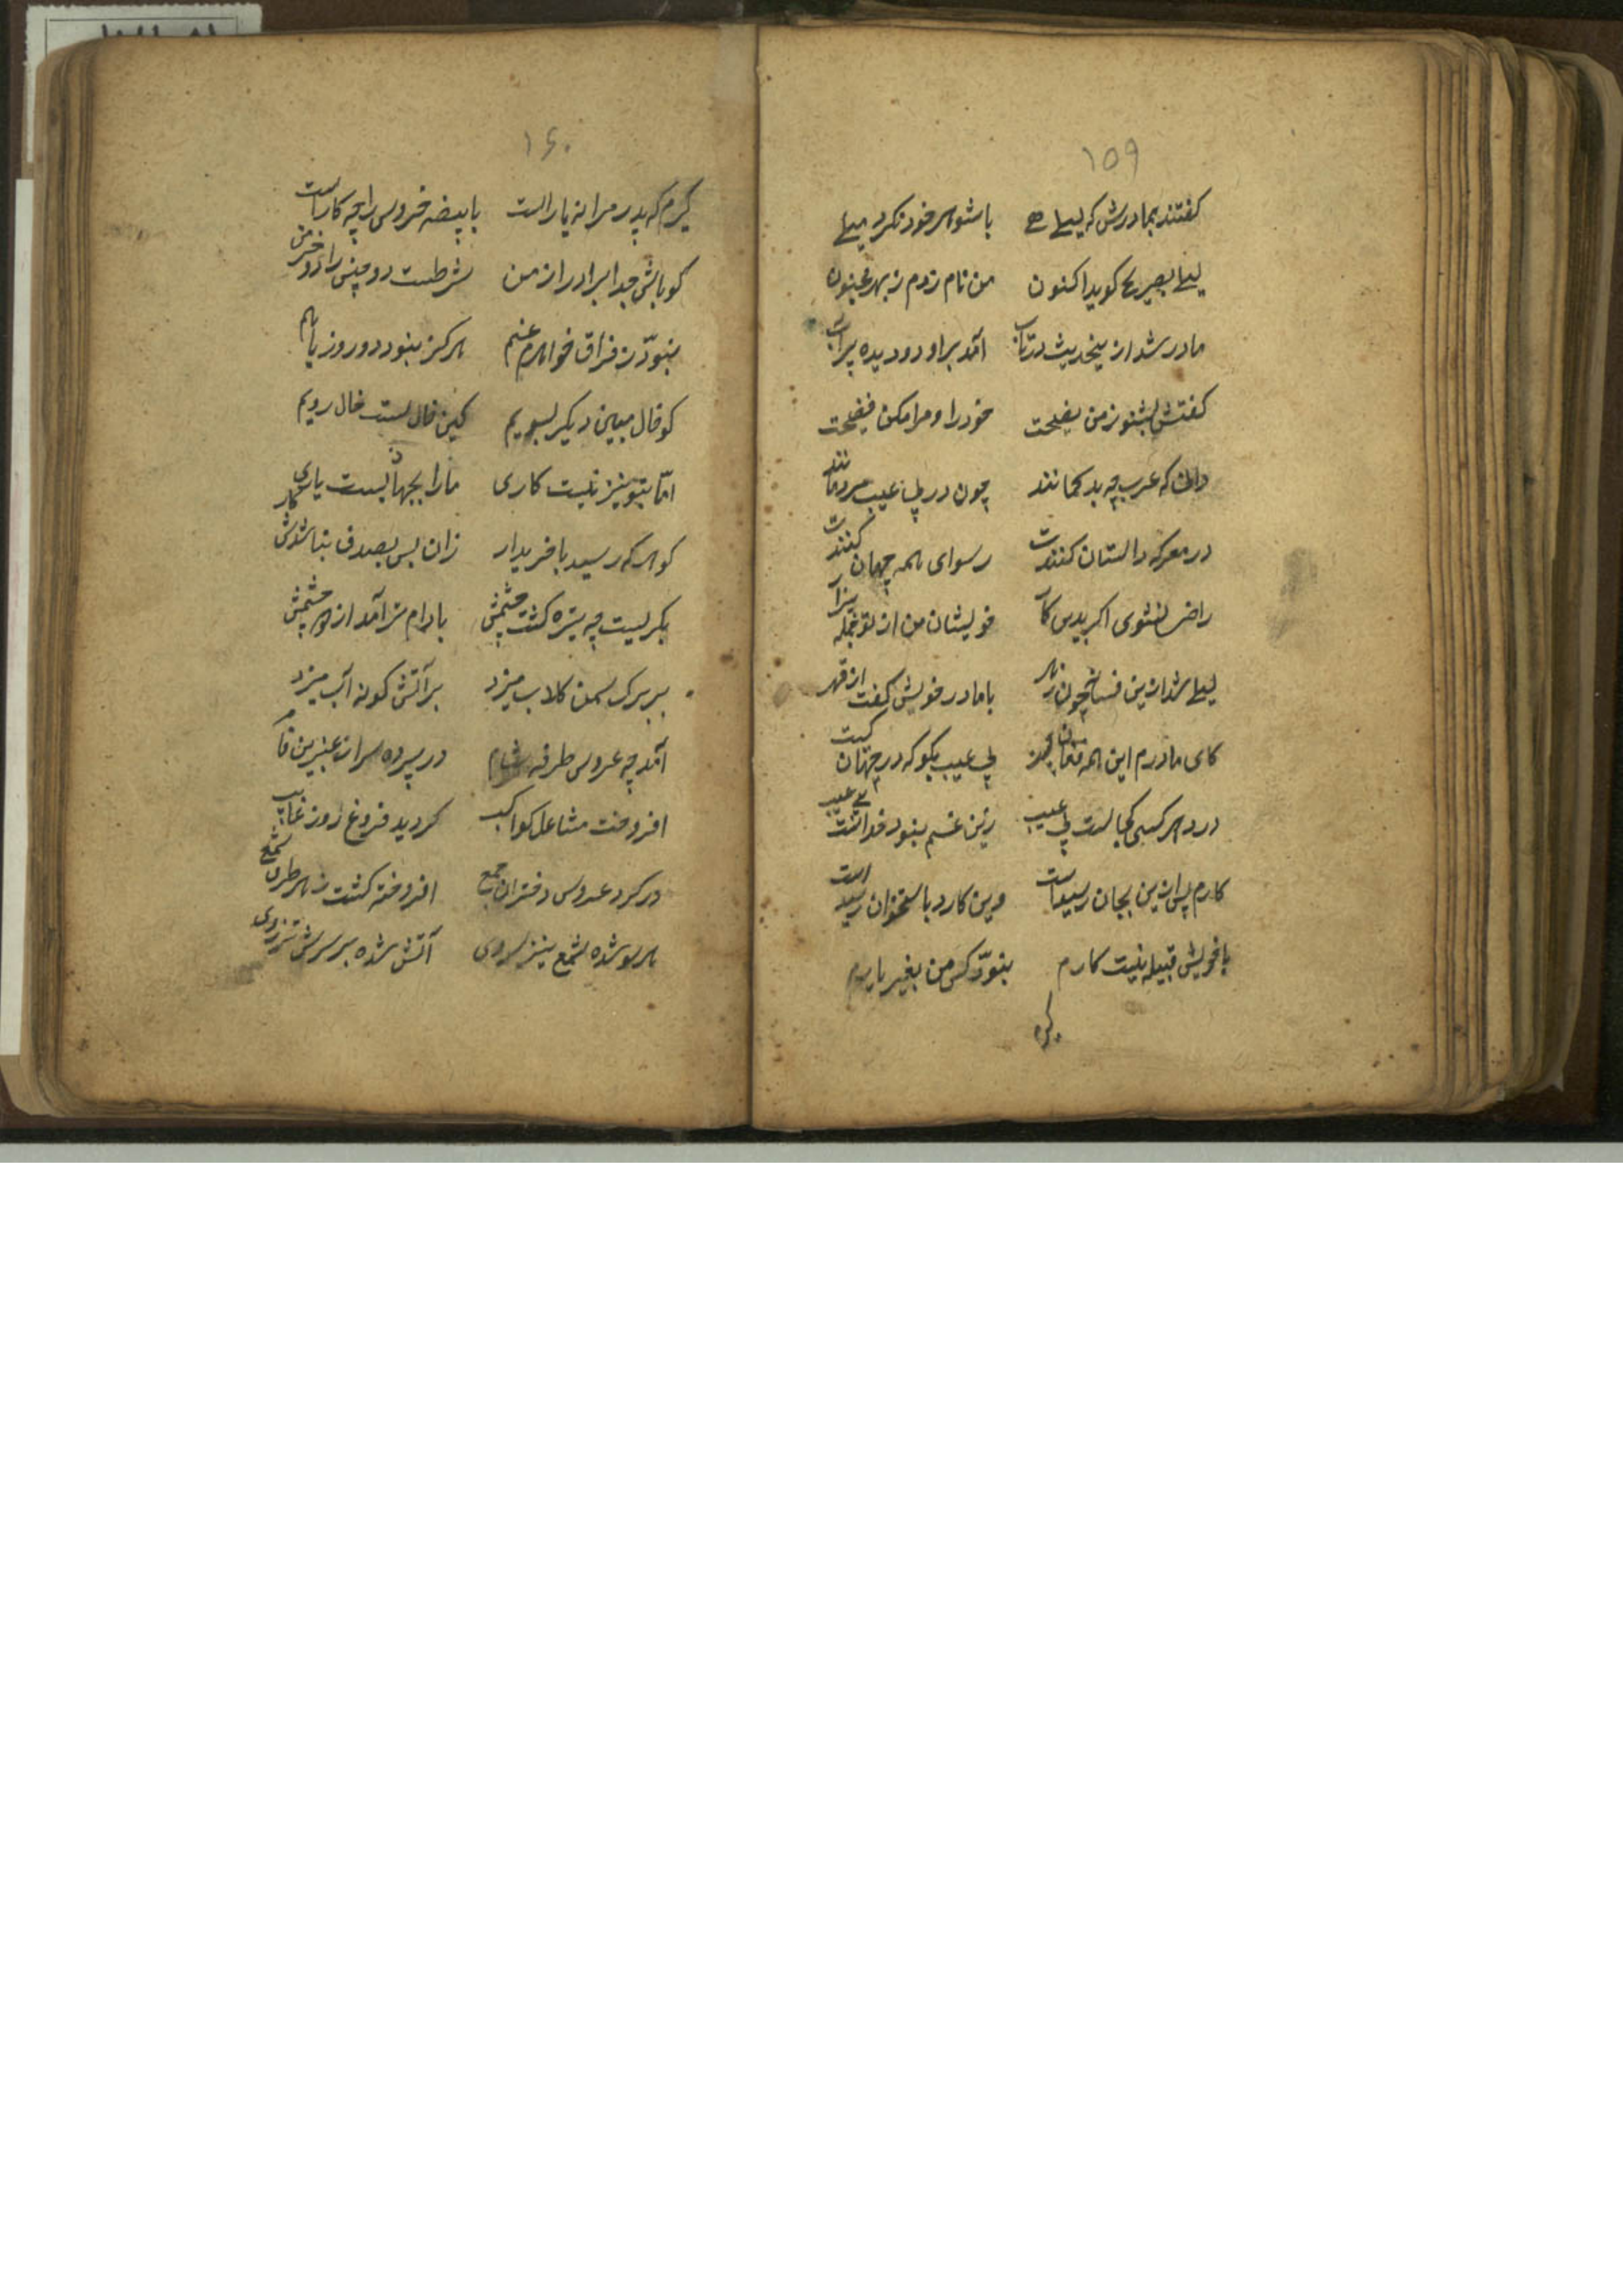 ۱۵۹
کفتند بمادرش که لیلی با شوهر خود نکرد میلی
لیلی بصریح کوید اکنون من نام زدم ز بهر مجنون
مادر شد ازین حدیث در تاب آمد بر او دو دیده پر آب
کفتش بشنو ز من نصیحت خود را و مرا مکن فضیحت
دانی که عرب چه بد کمانند چون در پی عیب مردمانند
در معرکه داستان کنندت رسوای همه جهان کنندت
راضی نشوی اکر بدین کار خویشان من از تو جمله بیزار
لیلی شد ازین فسانه چون زهر با مادر خویش کفت از قهر
کای مادرم این همه فغان چیست بی عیب بکو که در جهان کیست
در دهر کسی کجاست بی عیب زین غم نبود خداست بی عیب
کارم پس ازین بجان رسیداست وین کارد باستخوان رسید است
با خویش قبیله نیست کارم نبود کس من بغیر یارم
۱۶۰
کیرم که پدر مرا نه یار است با بیضه خروس را چه کار است
کو باش جدا برادر از من
نبود ز فراق خواهرم غم هرکز نبود دو روز با هم
کو خال مبین دیکر بسویم کین خال بست خال رویم
اما بتو نیز نیست کاری ما را بجهان بست یاری
کوهر که رسید با خریدار زان پس بصدف نباشدش کار
بکریست چه تیره کشت چشمش بادام تر آمد از چشمش
بر برک سمن کلاب میزد بر آتش کونه آب میزد
آمد چه عروس طرفه شام در پرده سرای عنبرین فام
افروخت مشاعل کواکب کردید فروغ روز غایب
در کرد عروس دختران جمع افروخته کشت ز هر طرف شمع
هر سو شده شمع نیز سروی آتش شده بر سرش تذروی